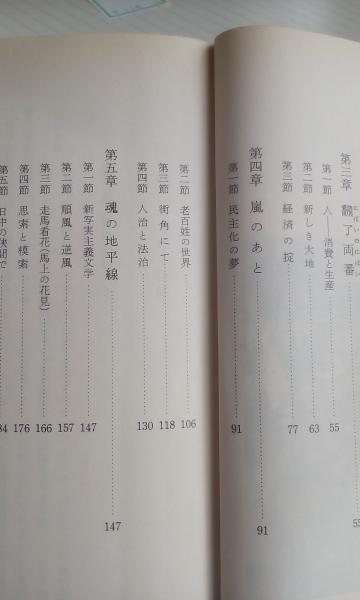 第三章 翻了両番 55
第一節 人――消費と生産 55
第二節 新しき大地 63
第三節 経済の掟 77
第四章 嵐のあと 91
第一節 民主化の夢 91
第二節 老百姓の世界 106
第三節 街角にて 118
第四節 人治と法治 130
第五章 魂の地平線 147
第一節 新写実主義文学 147
第二節 順風と逆風 157
第三節 走馬看花(馬上の花見) 166
第四節 思索と模索 176
第五節 日中の狭間で